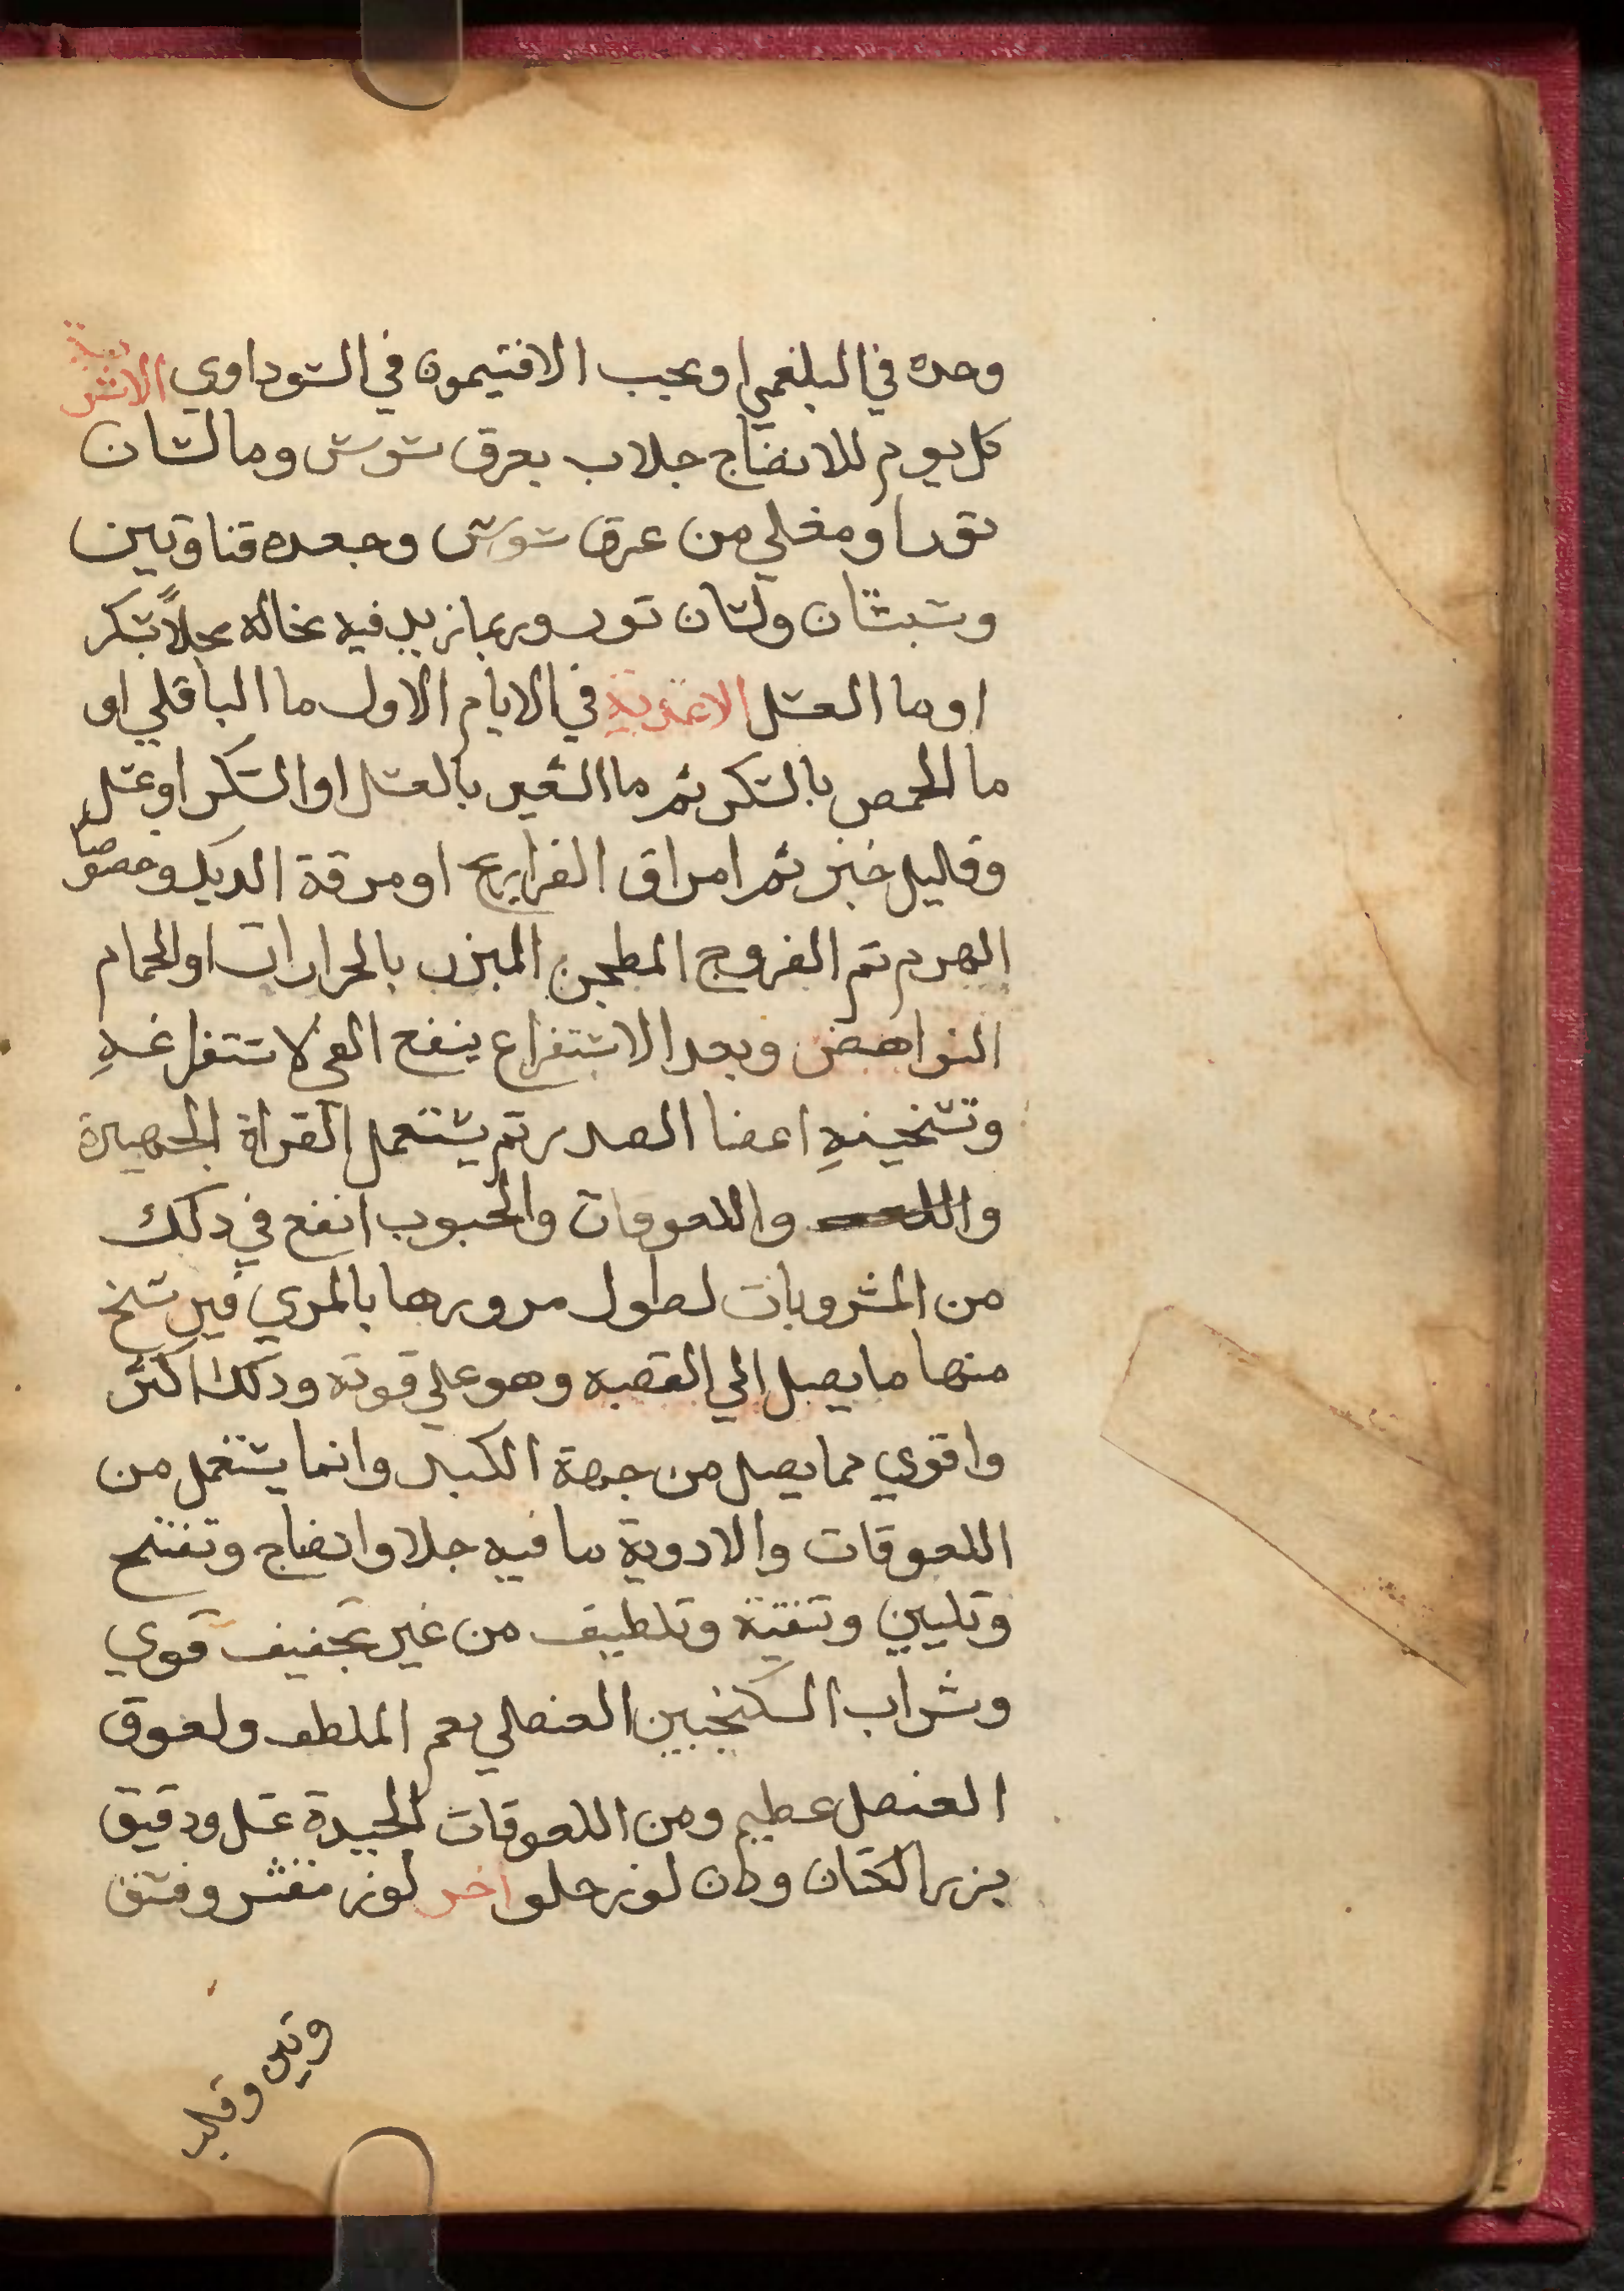 وحده في البلغمي او بحب الافتيمون في السوداوي الاشربة
كل يوم للانضاج جلاب بعرق سوس وما لسان
ثور او مغلي من عرق سوس وجعده قناوتين
وسبستان ولسان ثور وربما زيد فيه نخاله محلاً بسكر
او ما العسل الاغذية في الايام الاول ما الباقلي او
ما الحمص بالسكر ثم ما الشعير بالعسل او السكر او عسل
وقليل خبز ثم امراق الفراريج او مرقة الديك وخصوصا
الهرم ثم الفروج المطجن المبزر بالحرارات او الحمام
النواهض وبعد الاستفراغ ينفع القي لاستفراغهِ
وتسخينهِ اعضا الصدر ثم يستعمل القراة الجهيرة
واللعوقات والحبوب انفع في ذلك
من المشروبات لطول مرورها بالمري فيرشح
منها ما يصل الي القصبه وهو علي قوته وذلك اكثر
واقوي مما يصل من جهة الكبد وانما يستعمل من
اللعوقات والادوية ما فيه جلا وانضاج وتفتح
وتليين وتنقية وتلطيف من غير تجفيف قوي
وشراب السكنجبين العنصلي نعم الملطف ولعوق
العنصل عظيم ومن اللعوقات الجيدة عسل ودقيق
بزر الكتان ودهن لوز حلو اخر لوز مقشر وفستق
وتين وقلب